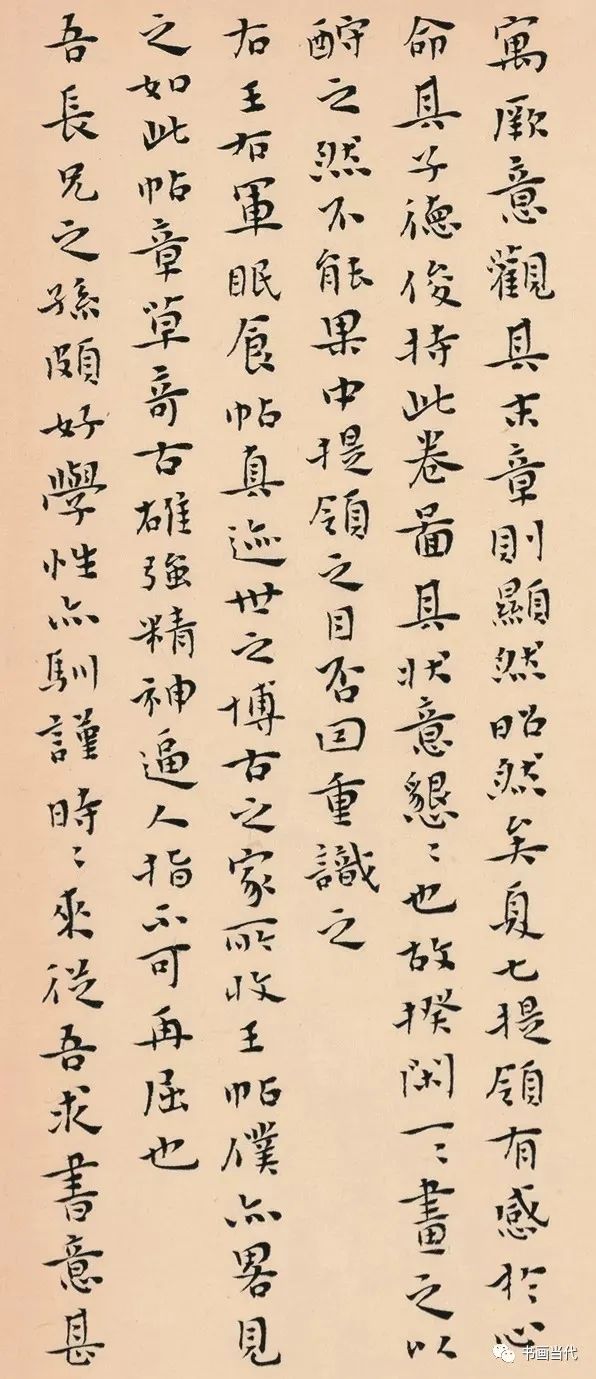 寓厥意觀其末章則顯然昭然矣夐七提領有感於心
命其子德俊持此卷啚其狀意懇〻也故揆閑一〻畫之以
酧之然不能果中提領之目否因重識之
右王右軍眠食帖真迹世之博古之家所收王帖僕亦畧見
之如此帖章草奇古雄強精神逼人指不可再屈也
吾長兄之孫頗好學性亦馴謹時〻來從吾求書意甚
书画当代